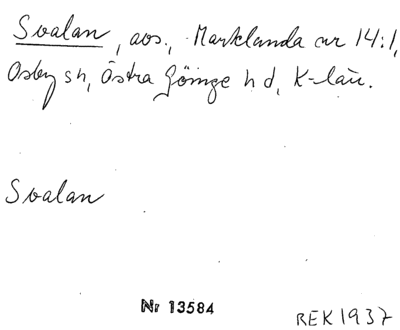 Svalan, avs., Marklunda nr 14:1,
Osby sn, Östra Göinge hd, K-län.
Svalan
Nr 13584
REK 1937